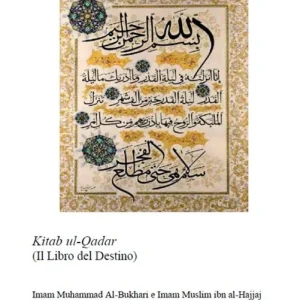 بسم الله الرحمن الرحيم
إنا أنزلناه في ليلة القدر وما أدراك ما ليلة
القدر ليلة القدر خير من ألف شهر تنزل
الملئكة والروح فيها بإذن ربهم من كل أمر
سلام هي حتى مطلع الفجر
Kitab ul-Qadar
(Il Libro del Destino)
Imam Muhammad Al-Bukhari e Imam Muslim ibn al-Hajjaj